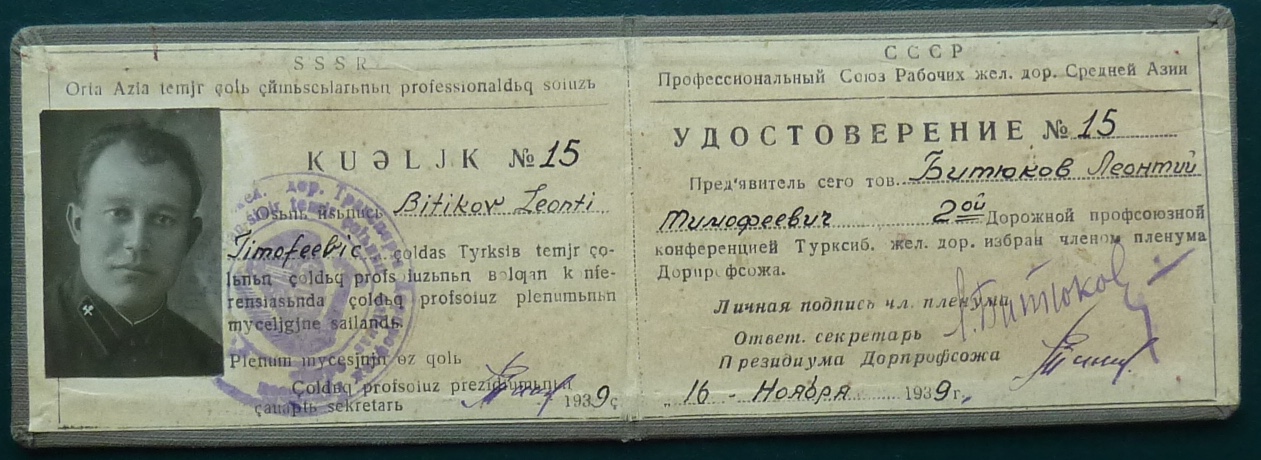 SSSR
Orta Azia temjr çolь çijmьscьlarьnьꞑ professionaldьq soiuzь
KUƏLJK № 15
Osьnь usьnucь Bitikov Leonti
Timofeevic çoldas Tyrksib temjr ço-
lьnьꞑ çoldьq profsoiuzьnьꞑ bolqan konfe-
rensiasьnda çoldьq profsoiuz plenumьnьꞑ
myceljgjne sailandь.
Plenum mycesjnjꞑ өz qolь
Çoldьq profsoiuz prezidiumьnьꞑ
çauaptь sekretarь
1939 ç
СССР
Профессиональный Союз Рабочих жел. дор. Средней Азии
УДОСТОВЕРЕНИЕ № 15
Пред'явитель сего тов. Битюков Леонтий
Тимофеевич 2ой Дорожной профсоюзной
конференцией Турксиб. жел. дор. избран членом пленума
Дорпрофсожа.
Личная подпись чл. пленума Л. Битюков
Ответ. секретарь
Президиума Дорпрофсожа
„16 - Ноября 1939 г.